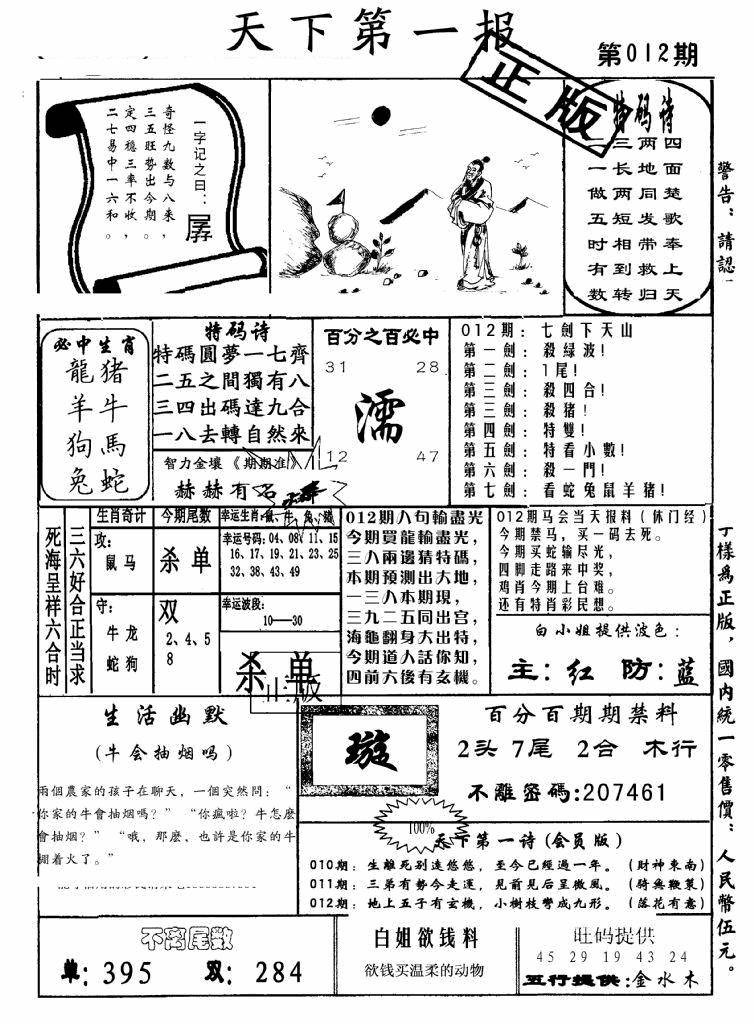 天下第一报
第012期
正版
一字记之曰：
孱
奇怪九数与八来，
三五旺势出今期。
定四稳三率不收，
二七易中一六和。
特码诗
四面楚歌奉上天
两地同发带救归
三长两短相到转
二一做五时有数
警告：請認
丁樣為正版，國内統一零售價：人民幣伍元。
必中生肖
龍豬
羊牛
狗馬
兔蛇
特码诗
特碼圓夢一七齊
二五之間獨有八
三四出碼達九合
一八去轉自然來
智力金壤《期期准》
赫赫有名
百分之百必中
31 28
濡
12 47
012期：七劍下天山
第一劍：殺綠波！
第二劍：1尾！
第三劍：殺四合！
第三劍：殺豬！
第四劍：特雙！
第五劍：特看小數！
第六劍：殺一門！
第七劍：看蛇兔鼠羊猪！
死海呈祥六合时
三六好合正当求
生肖奇计
攻：
鼠马
守：
牛龙
蛇狗
今期尾数
杀单
双
2、4、5
8
幸运生肖：鼠、牛、兔、猪
幸运号码：04、08、11、15
16、17、19、21、23、25
32、38、43、49
幸运波段：
10—30
杀单
正版
012期八句输盡光
今期買龍輸盡光，
三八兩邊猜特碼，
本期預測出大地，
一三八本期現，
三九二五同出宫，
海龜翻身大出特，
今期道人話你知，
四前六後有玄機。
012期马会当天报料（休门经）
今期禁马，买一码去死。
今期买蛇输尽光，
四脚走路来中奖，
鸡肖今期上台难。
还有特肖彩民想。
白小姐提供波色：
主：红 防：蓝
生活幽默
(牛会抽烟吗)
兩個農家的孩子在聊天，一個突然問：“
你家的牛會抽烟嗎？” “你瘋啦？牛怎麼
會抽烟？” “哦，那麼、也許是你家的牛
棚着火了。”
璇
百分百期期禁料
2头 7尾 2合 木行
不離密碼:207461
100%
天下第一诗(会员版)
010期：生離死别速悠悠，至今已經過一年。（財神東南）
011期：三弟有勢今走運，見前見后呈微風。（騎典鞭策）
012期：地上五子有玄機，小樹枝彎成九形。（落花有意）
不离尾数
单：395 双：284
白姐欲钱料
欲钱买温柔的动物
旺码提供
45 29 19 43 24
五行提供：金水木